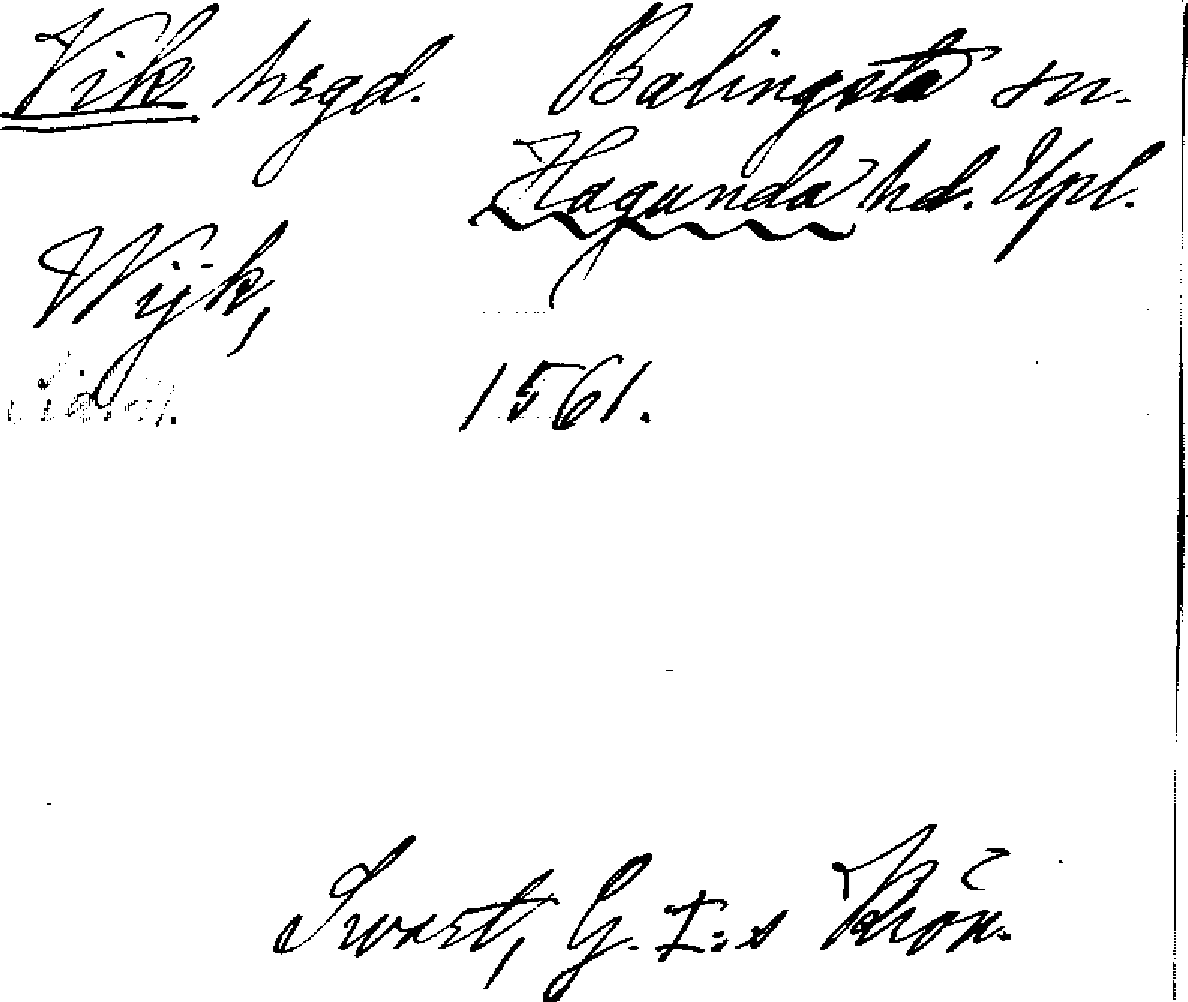 Vik hrgd. Balingsta sn.
Hagunda hd. Upl.
Wijk,
1561.
Swart, G. I:s Krön.